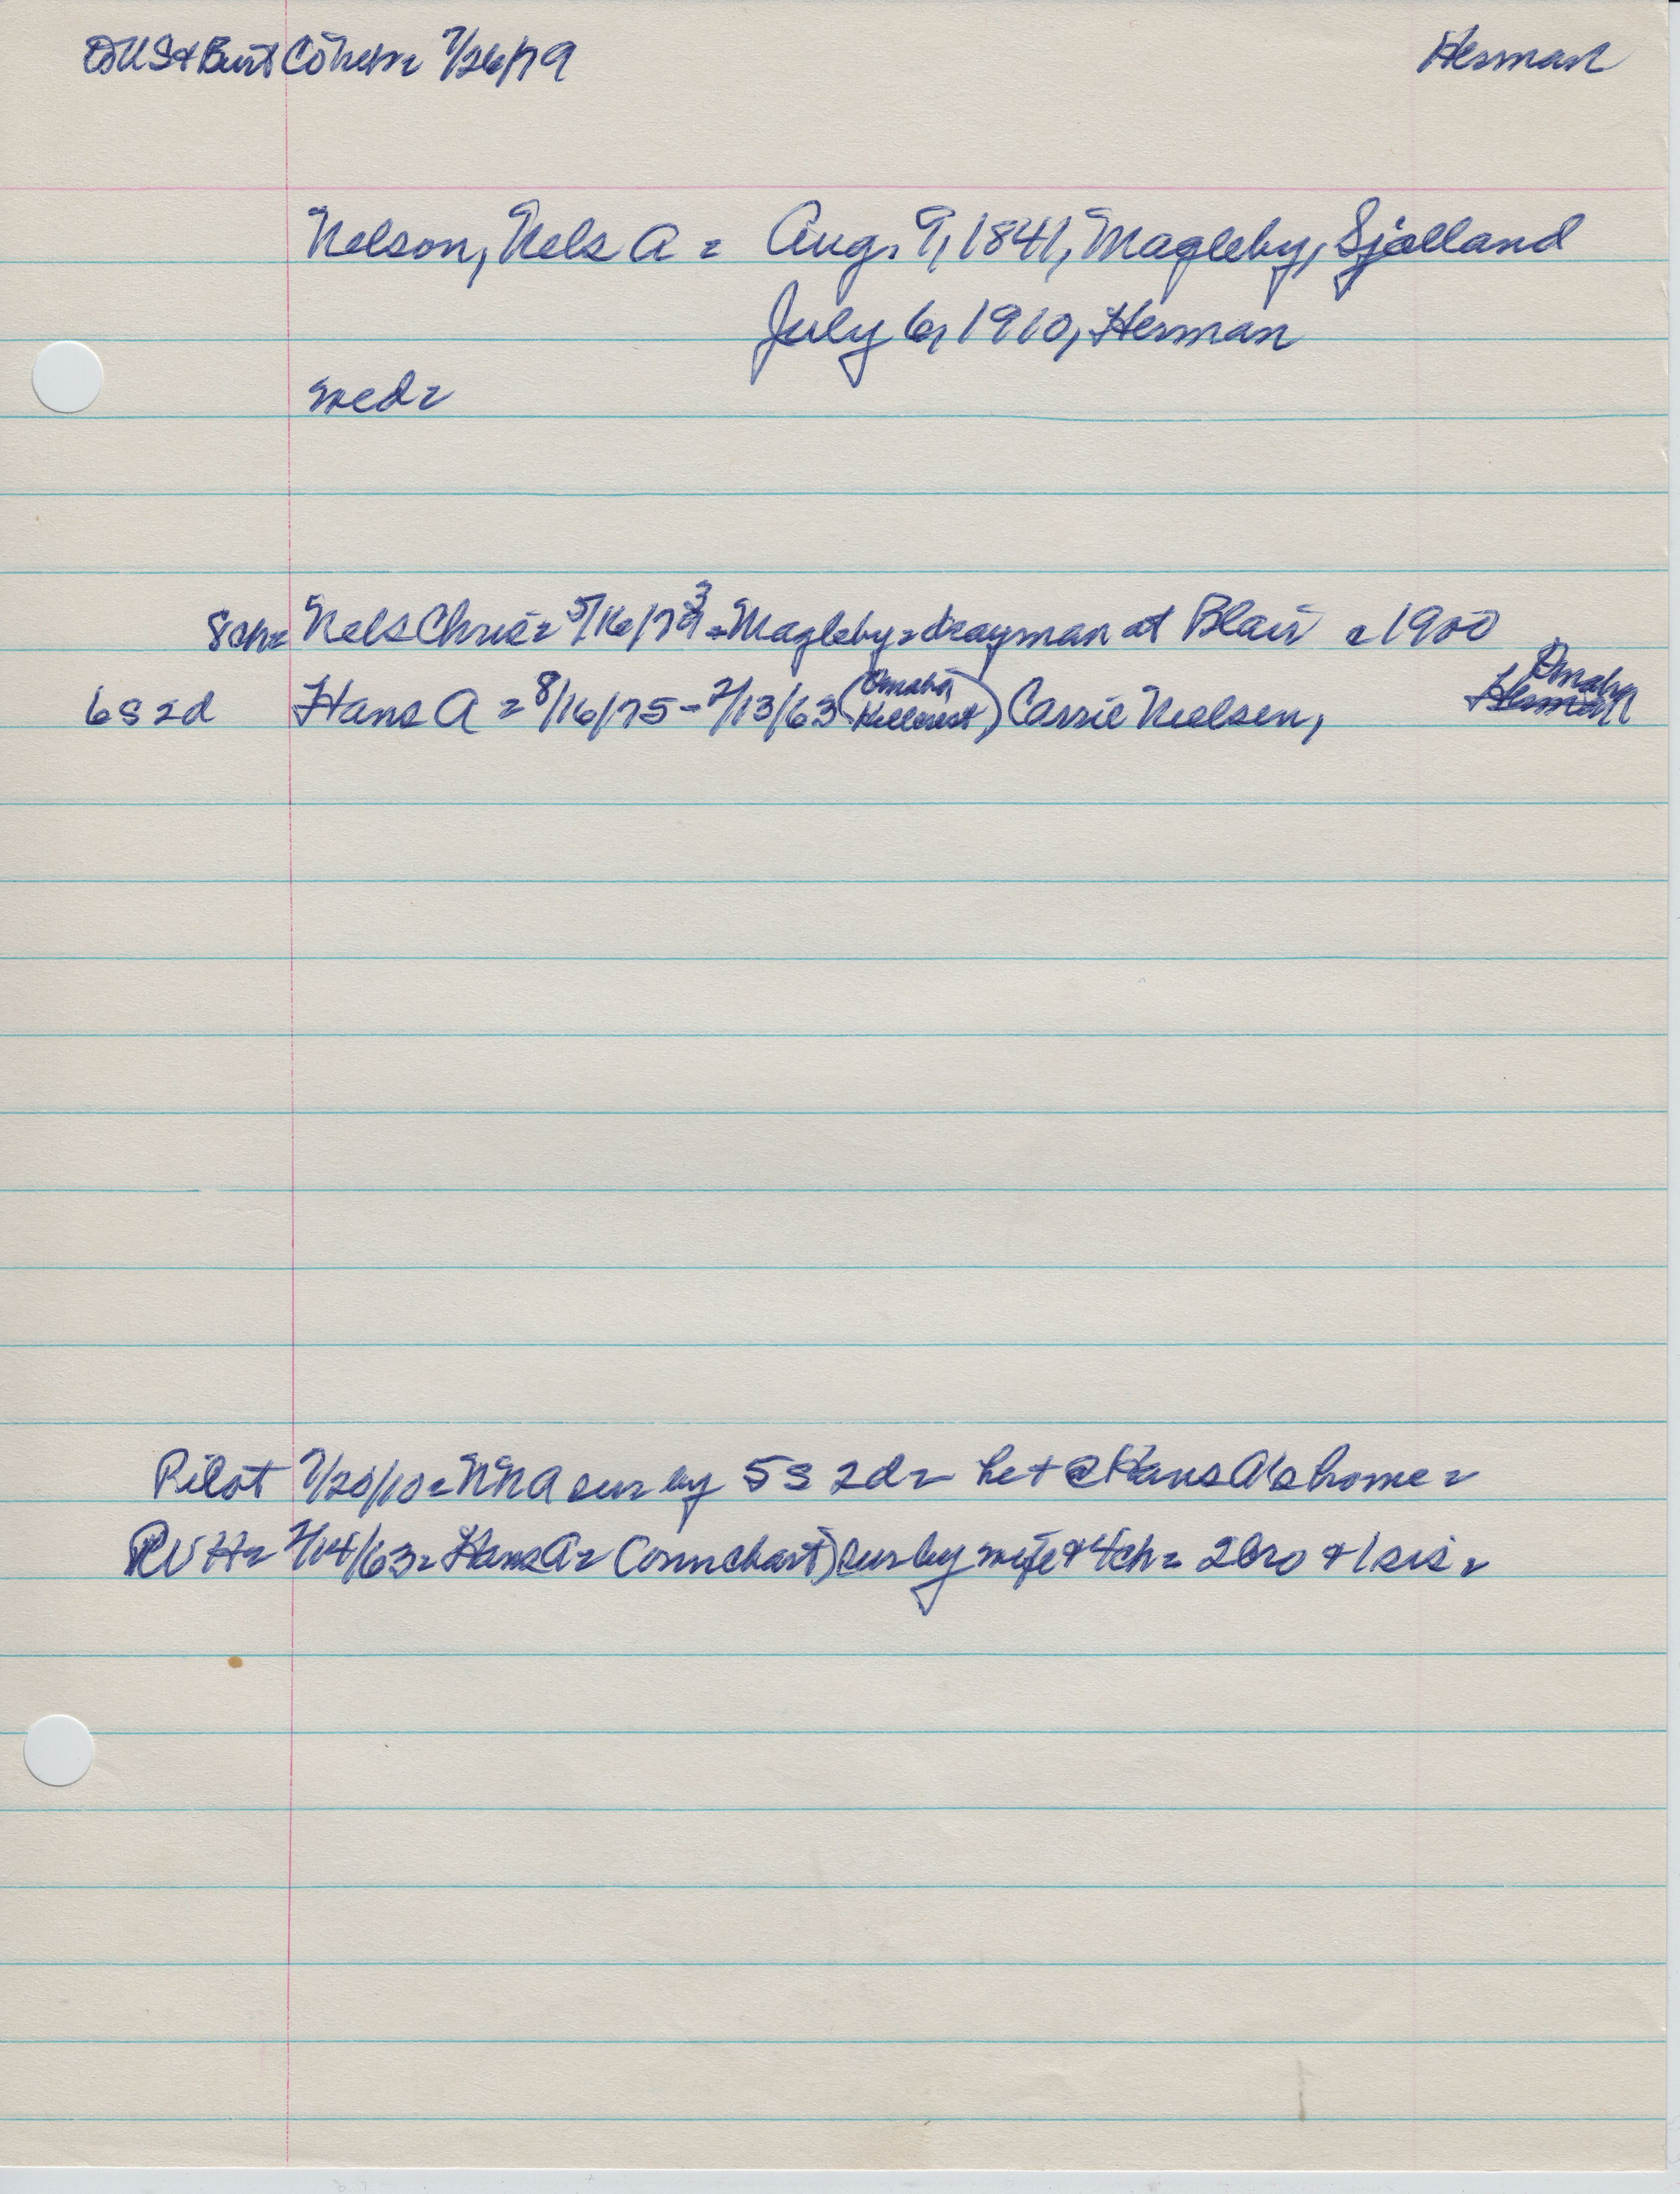 & Burt Cohen = 7/26/79 Herman
Nelson, Nels A = Aug. 9, 1841, Magleby, Sjælland
July 6, 1910, Herman
wed =
8ch = Nels Chris = 5/16/73 = Magleby = drayman at Blair = 1900
6s 2d Hans A = 8/16/75 - 2/13/63 (Omaha Hillcrest) Carrie Nielsen, Omaha
Pilot 7/20/10 = NNA sur by 5s 2d = he + @ Hans A's home =
RVH = 2/14/63 = Hans A = Corinchart) sur by wife & 4ch = 2bro & 1sis =